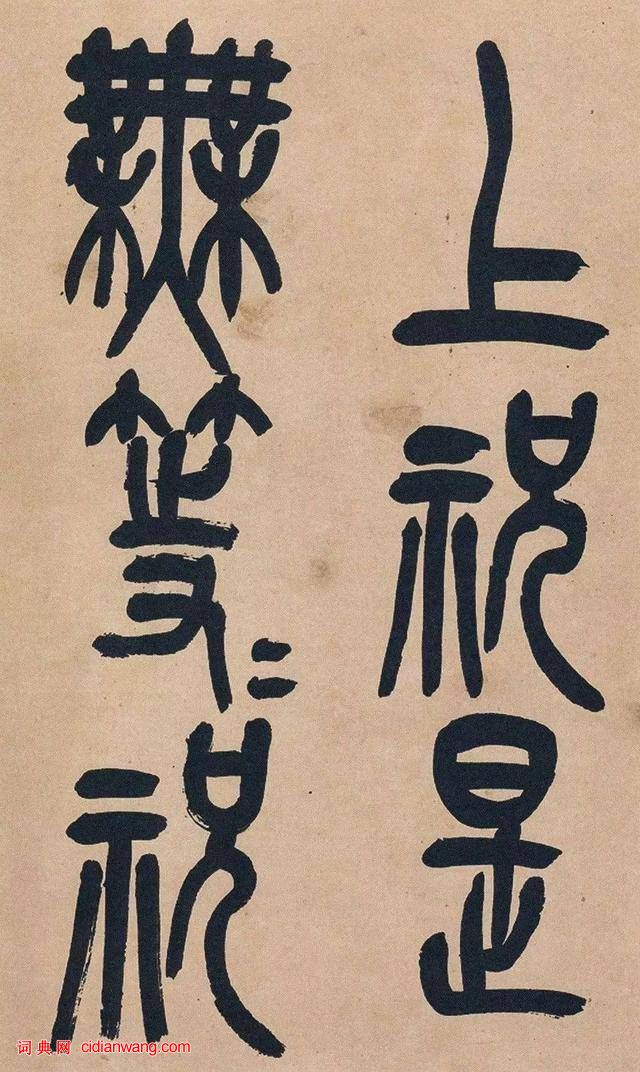 上祝是
無等〻祝
词典网 cidianwang.com